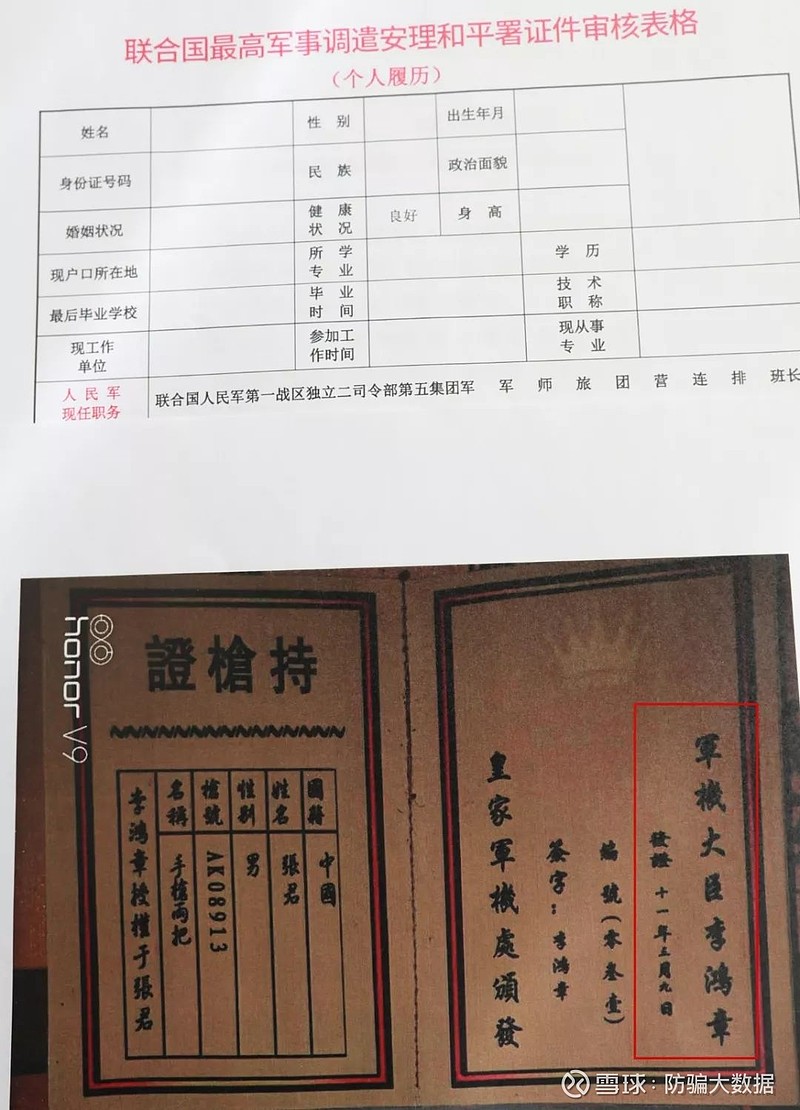 联合国最高军事调遣安理和平署证件审核表格
（个人履历）
姓名 性 别 出生年月
身份证号码 民 族 政治面貌
婚姻状况 健 康 状 况 良好 身 高
现户口所在地 所 学 专 业 学 历
最后毕业学校 毕 业 时 间 技 术 职 称
现工作 单位 参加工 作时间 现从事 专 业
人 民 军 现任职务 联合国人民军第一战区独立二司令部第五集团军 军 师 旅 团 营 连 排 班长
honor V9
軍機大臣李鴻章
發證 十一年三月九日
編號(零叁壹)
簽字：李鴻章
皇家軍機處頒發
持槍證
國籍 中國
姓名 張君
性别 男
槍號 AK08913
名稱 手槍兩把
李鴻章授權于張君
雪球：防骗大数据